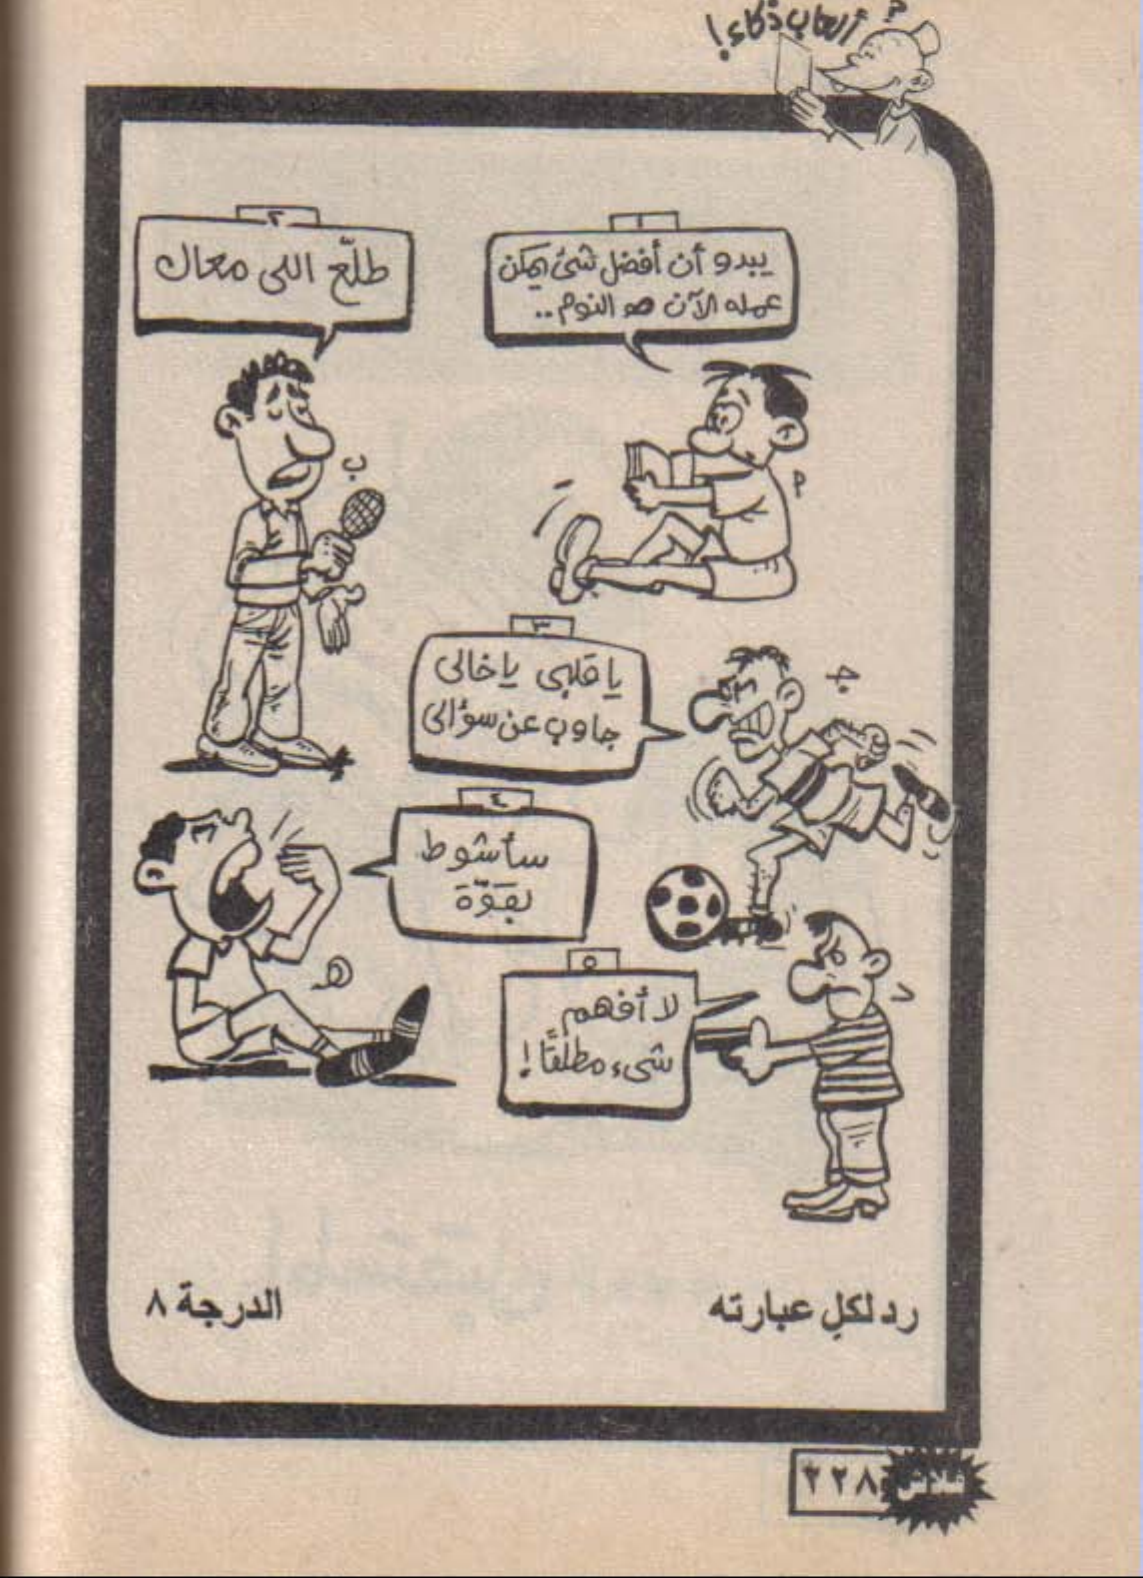 ألعاب ذكاء!
?
١
يبدو أن أفضل شئ يمكن
عمله الآن هو النوم..
أ
٢
طلّع اللى معاك
ب
٣
يا قلبى يا خالى
جاوب عن سؤالى
جـ
٤
سأشوط
بقوّة
هـ
٥
لا أفهم
شىء مطلقًا!
د
رد لكلِ عبارته
الدرجة ٨
فلاش
٢٢٨